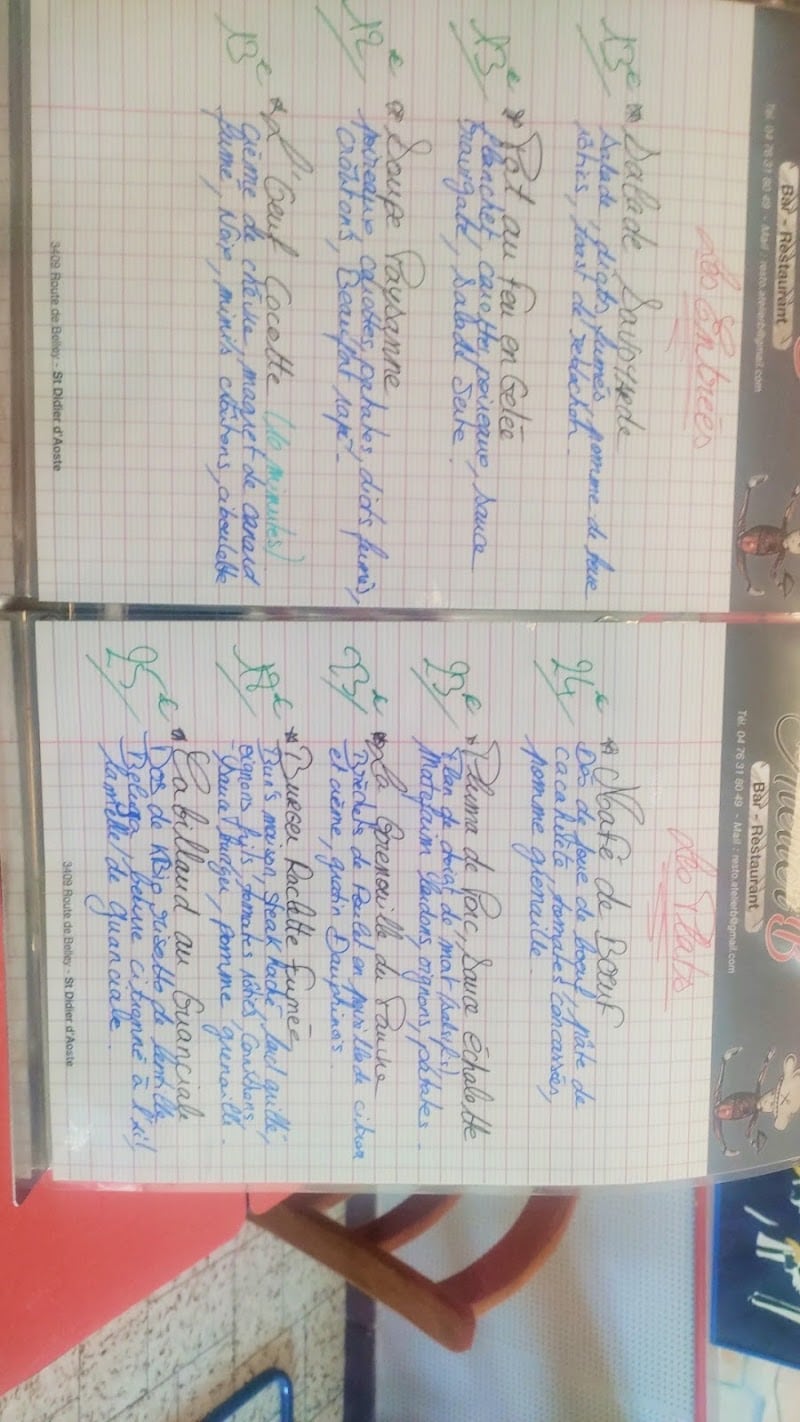 Bar - Restaurant
Tél. 04 76 31 80 49 - Mail : resto.atelierb@gmail.com
Les Entrées
13€ * Salade Savoyarde
Salade, diots fumés, pomme de terre
rôties, toast de reblochon.
13€ * Pot au feu en Gelée
Planchet, carottes, poireaux, sauce
, Salade Verte.
12€ * Soupe Paysanne
poireaux, carottes, patates, diots fumés,
croûtons, Beaufort rapé.
13€ * L'Oeuf Cocotte (10 minutes)
crème de chèvre, magret de canard
fumé, Noix, minis croûtons, ciboulette
3409 Route de Belley - St Didier d'Aoste
Bar - Restaurant
Tél. 04 76 31 80 49 - Mail : resto.atelierb@gmail.com
Les Plats
24€ * Mafé de Bœuf
Dés de joue de bœuf, pâte de
cacahuète, tomates concassées,
pomme grenaille.
23€ * Pluma de Porc, Sauce échalotte
Matafaim lardons, oignons, patates.
23€ * La Grenouille du Pauvre
de Poulet en persillade citron
et crème, gratin Dauphinois.
18€ * Burger Raclette Fumée
Bun's maison, steak haché, lard grillé,
oignons frits, tomates rôties, cornichons,
sauce burger, pomme grenaille.
25€ * Cabillaud au Guanciale
Dos de risotto de lentille
Beluga, beurre citronné à l'ail,
lamelle de guanciale.
3409 Route de Belley - St Didier d'Aoste